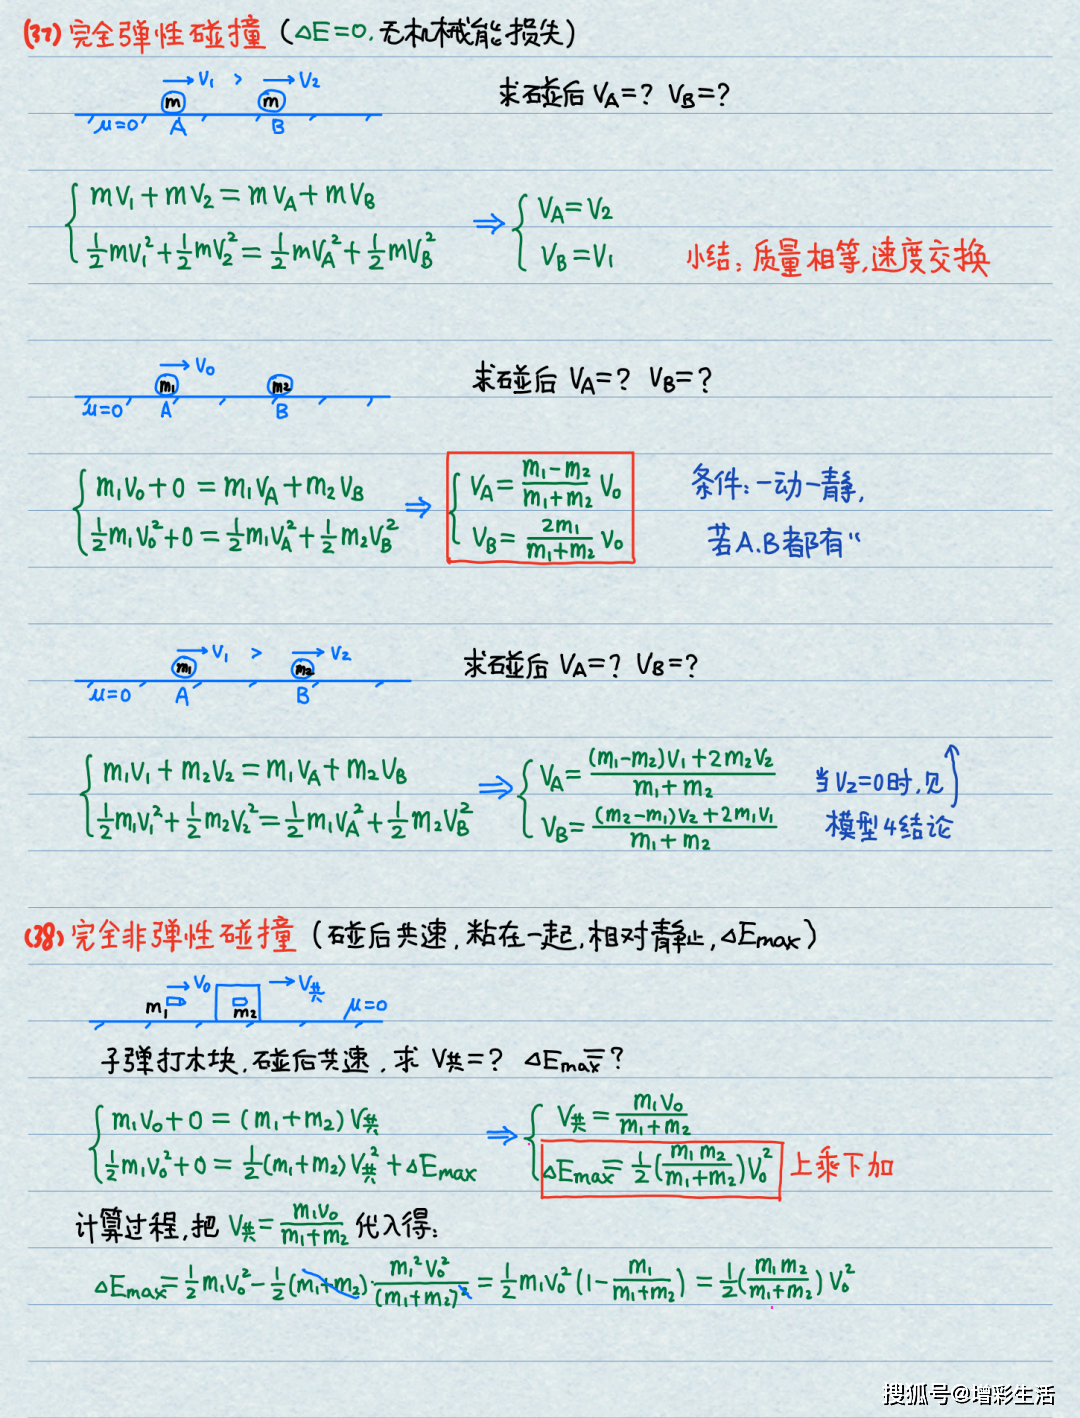 (37) 完全弹性碰撞 (△E=0.无机械能损失)
→V₁ > →V₂
m m
μ=0 A B
求碰后 VA=? VB=?
mV₁+mV₂=mVA+mVB
½mV₁²+½mV₂²=½mVA²+½mVB²
⇒ VA=V₂
VB=V₁
小结:质量相等,速度交换
→V₀
m₁ m₂
μ=0 A B
求碰后 VA=? VB=?
m₁V₀+0=m₁VA+m₂VB
½m₁V₀²+0=½m₁VA²+½m₂VB²
⇒ VA=(m₁-m₂)/(m₁+m₂) V₀
VB=2m₁/(m₁+m₂) V₀
条件:一动一静,
若A.B都有“
→V₁ > →V₂
m₁ m₂
μ=0 A B
求碰后 VA=? VB=?
m₁V₁+m₂V₂=m₁VA+m₂VB
½m₁V₁²+½m₂V₂²=½m₁VA²+½m₂VB²
⇒ VA=((m₁-m₂)V₁+2m₂V₂)/(m₁+m₂)
VB=((m₂-m₁)V₂+2m₁V₁)/(m₁+m₂)
当V₂=0时,见↑
模型4结论
(38) 完全非弹性碰撞 (碰后共速,粘在一起,相对静止,△Emax)
→V₀ →V共
m₁ m₂ μ=0
子弹打木块,碰后共速,求 V共=? △Emax=?
m₁V₀+0=(m₁+m₂)V共
½m₁V₀²+0=½(m₁+m₂)V共²+△Emax
⇒ V共=m₁V₀/(m₁+m₂)
△Emax=½(m₁m₂/(m₁+m₂))V₀²
上乘下加
计算过程,把 V共=m₁V₀/(m₁+m₂) 代入得:
△Emax=½m₁V₀²-½(m₁+m₂)·m₁²V₀²/(m₁+m₂)²=½m₁V₀²(1-m₁/(m₁+m₂))=½(m₁m₂/(m₁+m₂))V₀²
搜狐号@增彩生活